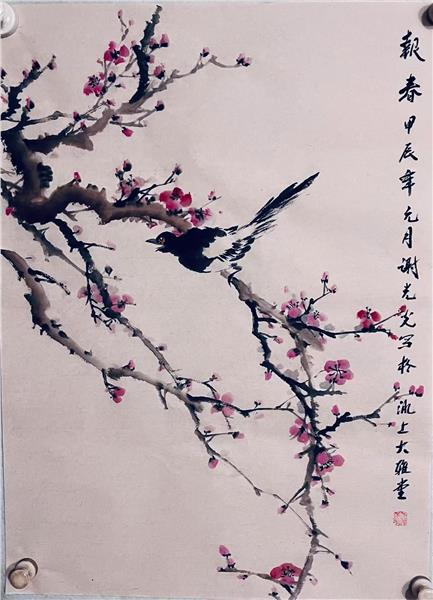 報春甲辰年元月謝光堂写於瀛上大雅堂